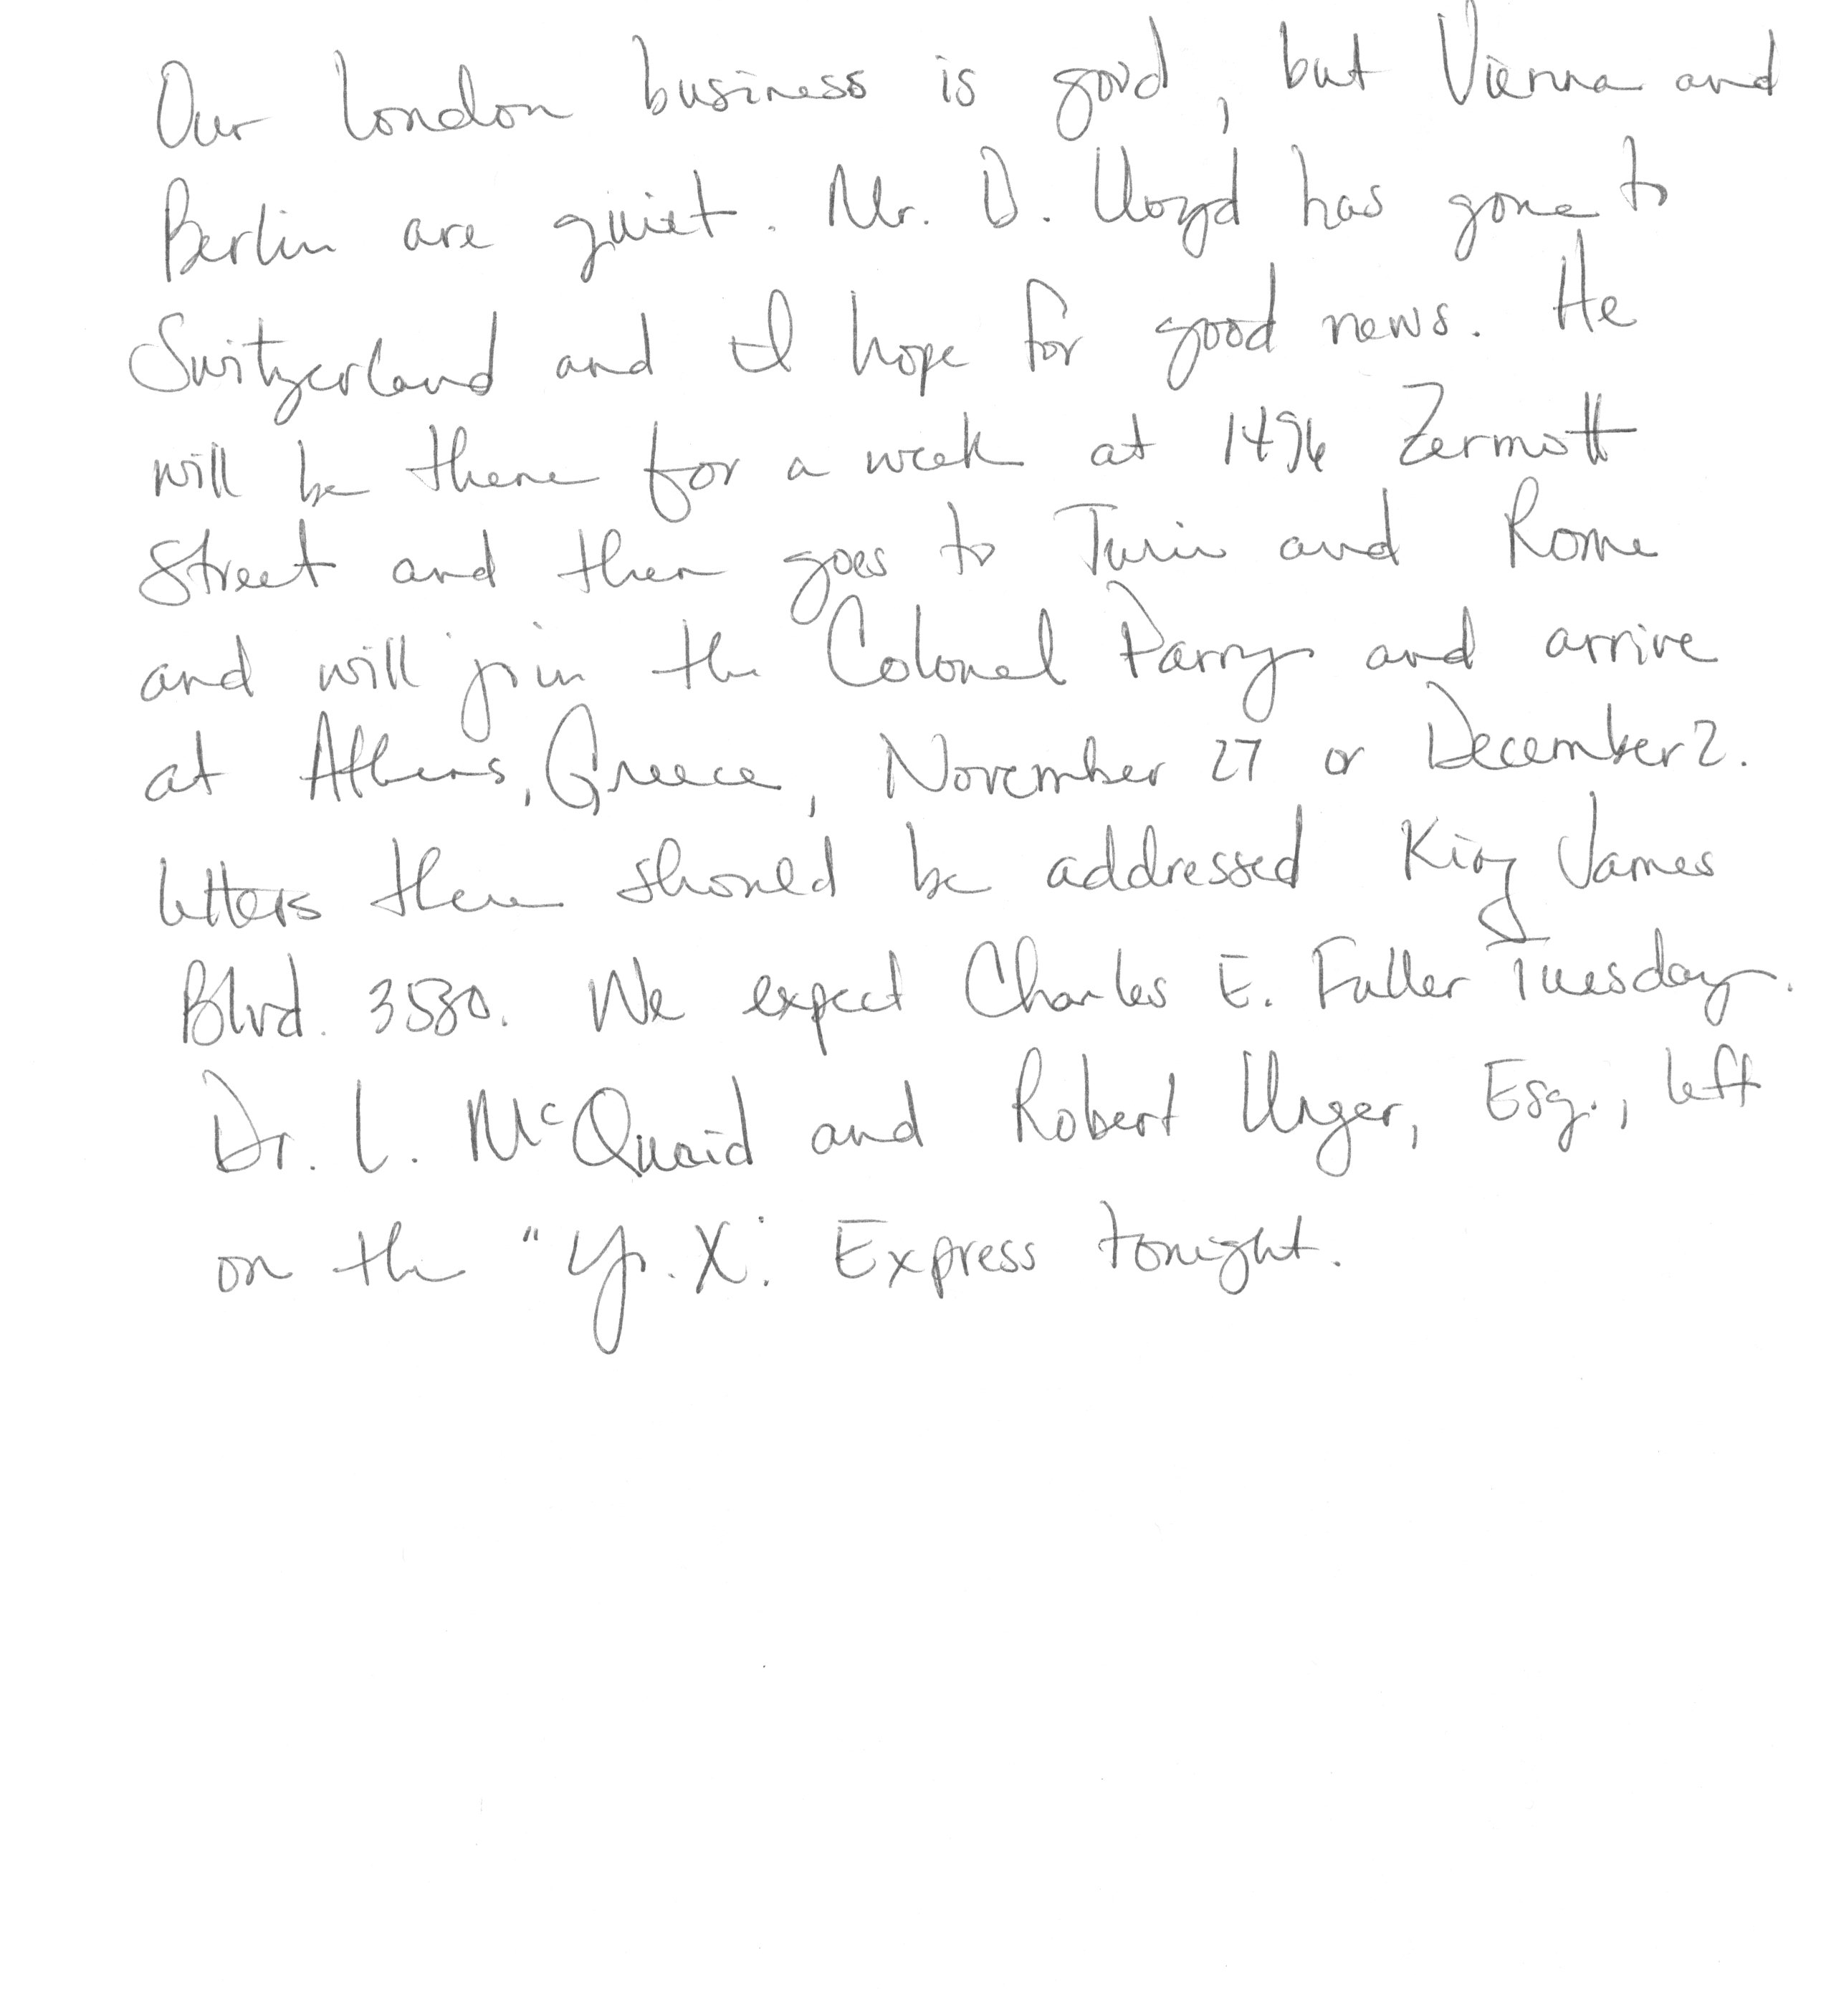 Our London business is good, but Vienna and
Berlin are quiet. Mr. D. Lloyd has gone to
Switzerland and I hope for good news. He
will be there for a week at 1496 Zermott
Street and then goes to Turin and Rome
and will join the Colonel Parry and arrive
at Athens, Greece, November 27 or December 2.
Letters there should be addressed King James
Blvd. 3580. We expect Charles E. Fuller Tuesday.
Dr. L. McQuaid and Robert Unger, Esq., left
on the "Y. X." Express tonight.